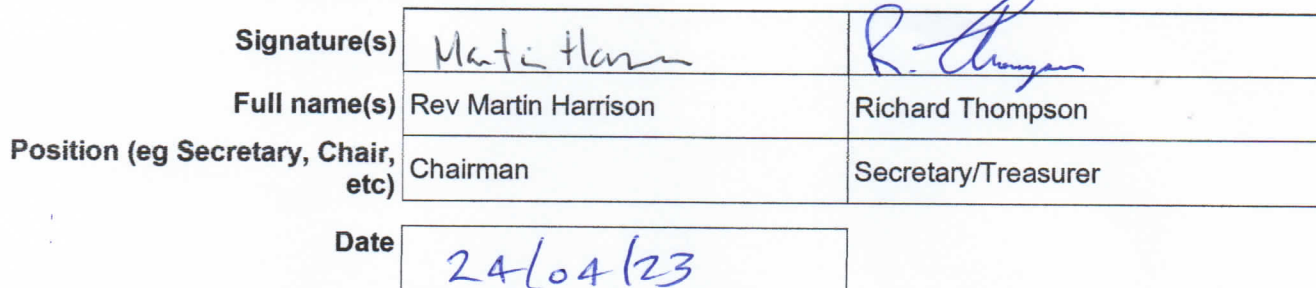 Signature(s) Martin Harrison R. Thompson
Full name(s) Rev Martin Harrison Richard Thompson
Position (eg Secretary, Chair,
etc) Chairman Secretary/Treasurer
Date 24/04/23